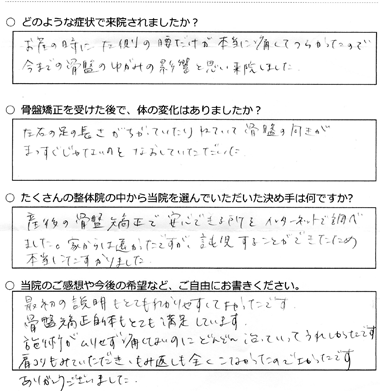 ○ どのような症状で来院されましたか?
お産の時に左側の腰だけが本当に痛くてつらかったので
今までの骨盤のゆがみの影響と思い来院しました。
○ 骨盤矯正を受けた後で、体の変化はありましたか?
左右の足の長さがちがっていたりねていて骨盤の向きが
まっすぐじゃないのをなおしていただいた
○ たくさんの整体院の中から当院を選んでいただいた決め手は何ですか?
産後の骨盤矯正で安心できる所をインターネットで調べ
ました。家からは遠かったですが、託児することができたため
本当にたすかりました
○ 当院のご感想や今後の希望など、ご自由にお書きください。
最初の説明もとてもわかりやすくてよかったです
骨盤矯正自体もとても満足しています。
施術がムリせず痛くないのにどんどん治っていってうれしかったです
肩コリもみていただき、もみ返しも全くこなかったのでよかったです
ありがとうございました